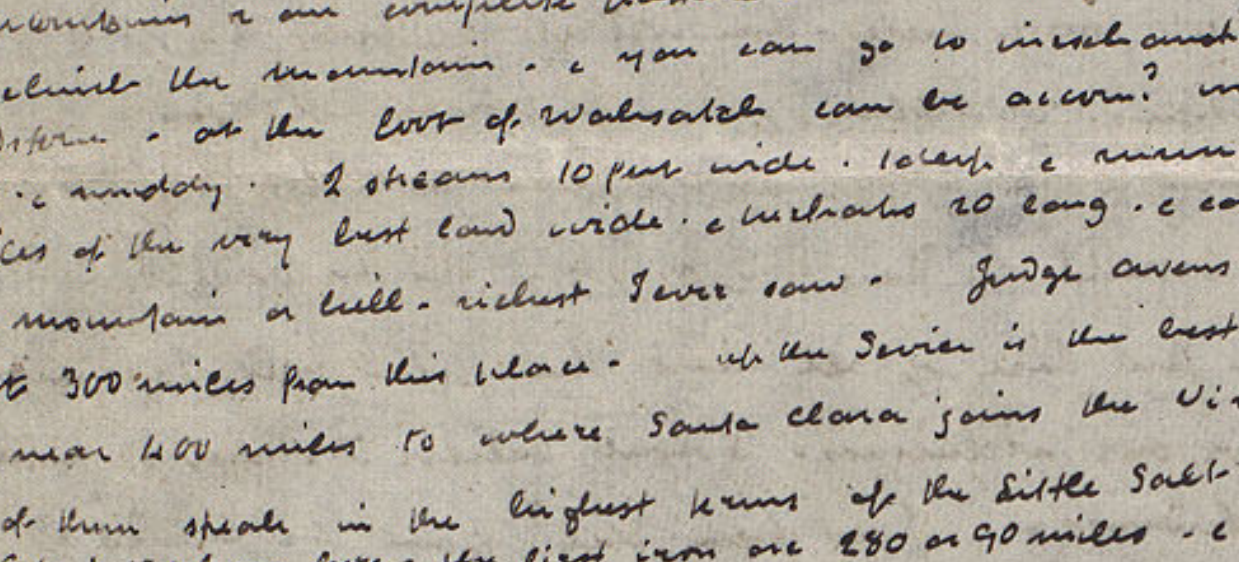 mountains & on complete
climb the mountain . & you can go to inexhaust
. at the foot of Wahsatch can be accom? in
. & muddy . 2 streams 10 feet wide . 1 deep & runn
ces of the very best land wide . & perhaps 20 long . & co
mountain or hill . richest I ever saw . Judge avens
t 300 miles from this place . up the Sevier is the best
near 400 miles to where Santa Clara joins the Vir
of them speak in the highest terms of the Little Salt
the first iron ore 280 or 90 miles . &